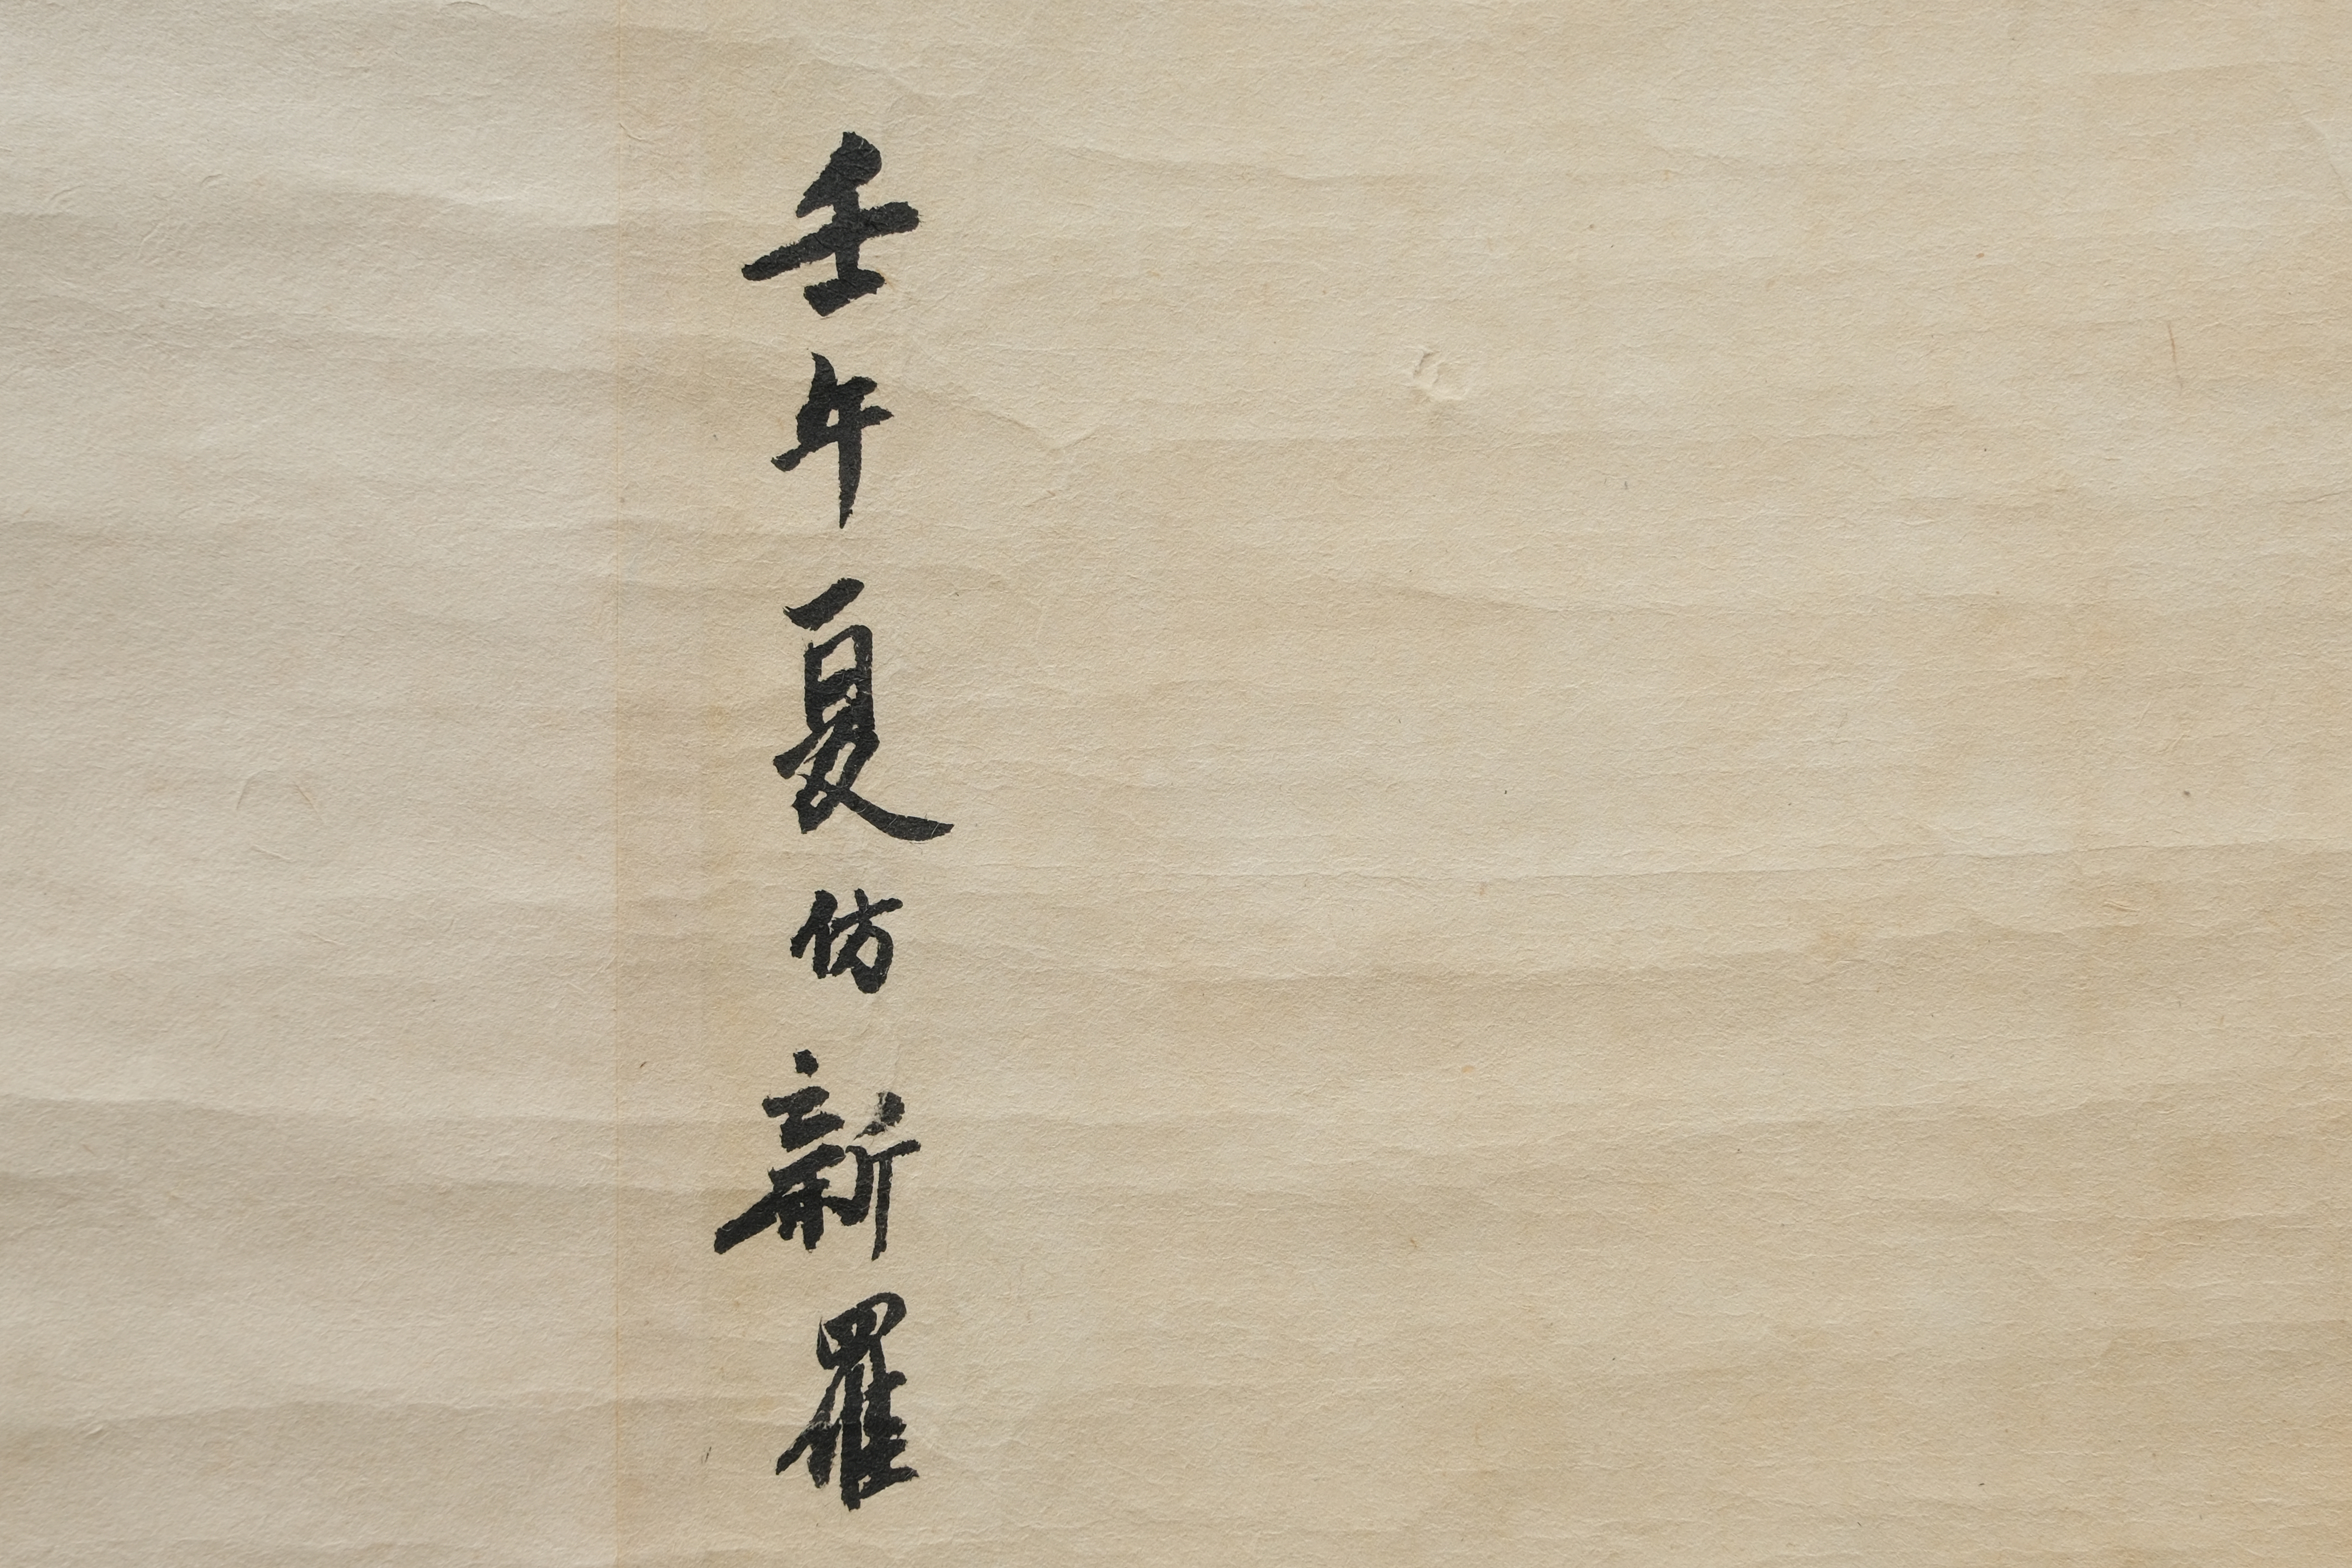 壬午夏仿新羅